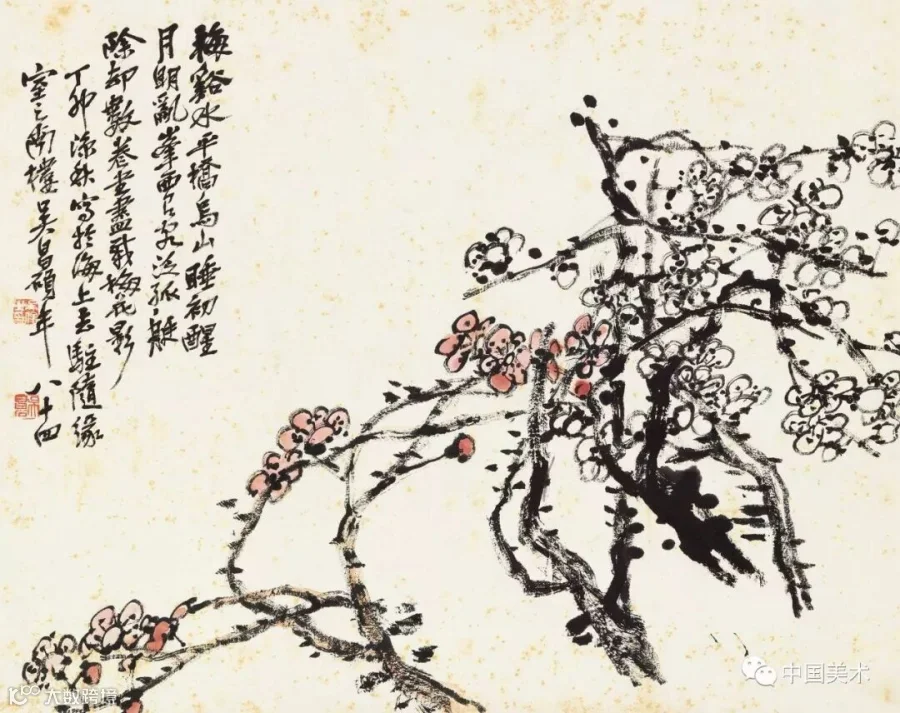 梅谿水平橋烏山睡初醒
月明亂峯西有客泛孤艇
除却數卷書盡載梅花影
丁卯深秋寫於海上去駐隨緣
室之南樓吳昌碩年八十四
中国美术
大数跨境